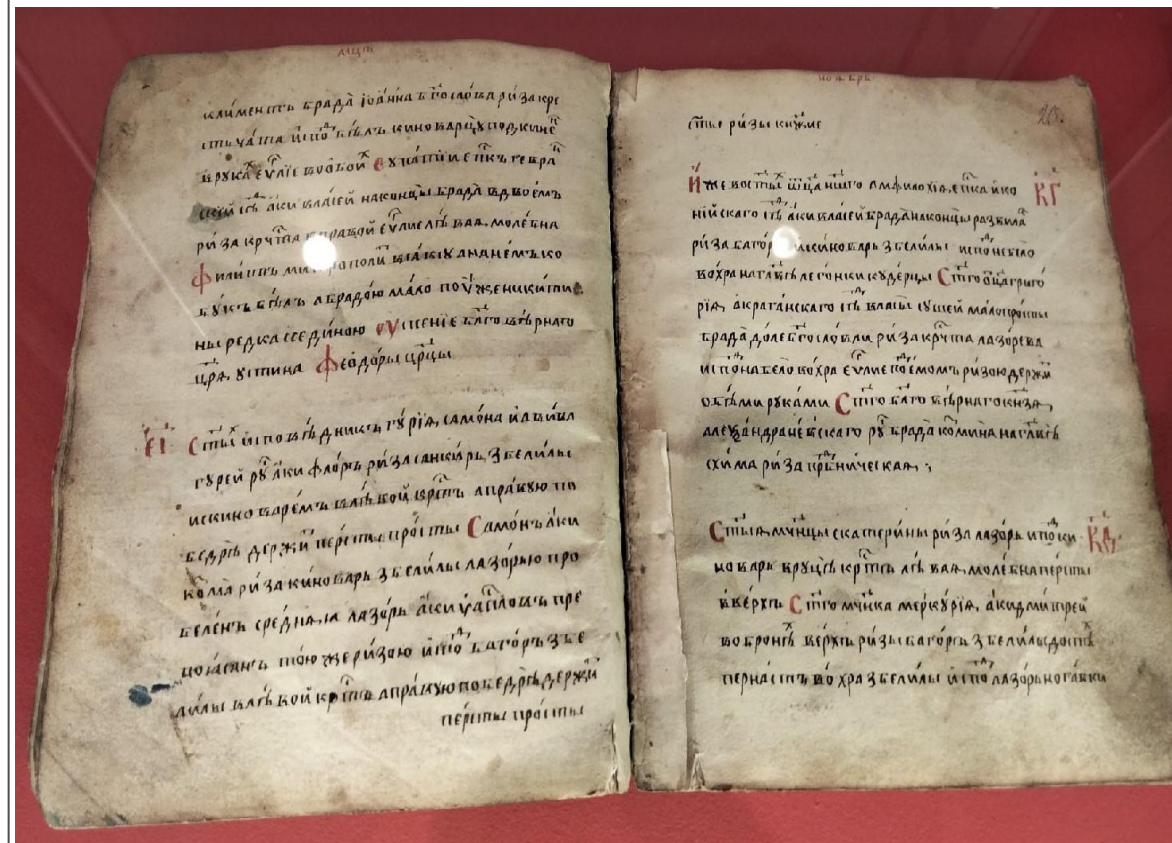 мцъ
климентъ брада̀ іѡа́нна бг҃осло́ва ри́за кре
стьча́та испо̀ бѣ́лъ киноварцу подкинѐ
в рука̀ еѵ҃ліе во ѻбои̑ еѵпа́тіи еп҃къ гевра
скі́й сѣ̑ аки вла́сіей наконцы̀ брада̀ вдвоемъ
ри́за кр҃чта в пра́вой еѵ҃ліе лѣ́вая, моле́бна
филиппъ митрополи̑
бу́къ бѣ́лъ а брадо́ю ма́ло поу́же никити
ны редка сседи́ною успе́ніе бл҃говѣ́рнаго
цр҃я, устина феодо́ры цр҃цы
є҃і ст҃ы̑ испо́вѣдникъ, гу́рія, само́на и а́вива
гу́рей ру̑ а́ки фло́ръ ри́за санки́рь, з белилы
и с кино́варемъ в лѣ́вой кр҃стъ а пра́вую по
бедрѣ̀ держи̑ пе́рсты про́сты Само́нъ а́ки
ко́зма ри́за кинова́рь з бели́лы лазо́рью про
беле́нъ сре́дняя лазо́рь а́ки пре
поя́санъ то́юже ри́зою испо̀ баго́ръ з бе
ли́лы в лѣ́вой кр҃стъ а пра́вую по бедрѣ̀ держи̑
пе́рсты про́сты
ноябрь
20.
ст҃ы ри́зы кня́жие
И́же во ст҃ы̑ ѻц҃а на́шего амфило́хія, еп҃ка ико
к҃г
ні́йскаго сѣ̑ а́ки вла́сіей брада̀ на концы̀ развила̀
ри́за баго́ръ кинова́рь з бели́лы испо̀ небѣло
во́хра на главѣ̀ лего́нки ку́дерцы Ст҃го ѻц҃а григо́
рія, акрага́нскаго сѣ̑ власы̀
брада̀ до́ле бг҃осло́вли ри́за кр҃чта лазо́рева
испо̀ набело во́хра еѵ҃ліе прие́момъ ри́зою держи̑
обѣ́ми рука́ми Ст҃го бл҃говѣ́рнаго кн҃зя,
алеѯа́ндра не́вскаго ру̑ брада̀ ко́змина на главѣ̀
схи́ма ри́за пр҃бническая
Ст҃ыя, мч҃нцы екатери́ны ри́за лазо́рь испо̀ ки
к҃д
нова́рь в руцѣ̀ кр҃стъ лѣ́вая, моле́бна пе́рсты
вве́рхъ Ст҃го мч҃нка мерку́рія, а́ки дми́трей
во бронѣ̀ ве́рхъ ри́зы баго́ръ з бели́лы доспѣ̑
перна́стъ во́хра з бели́лы испо̀ лазо́рь ногавки